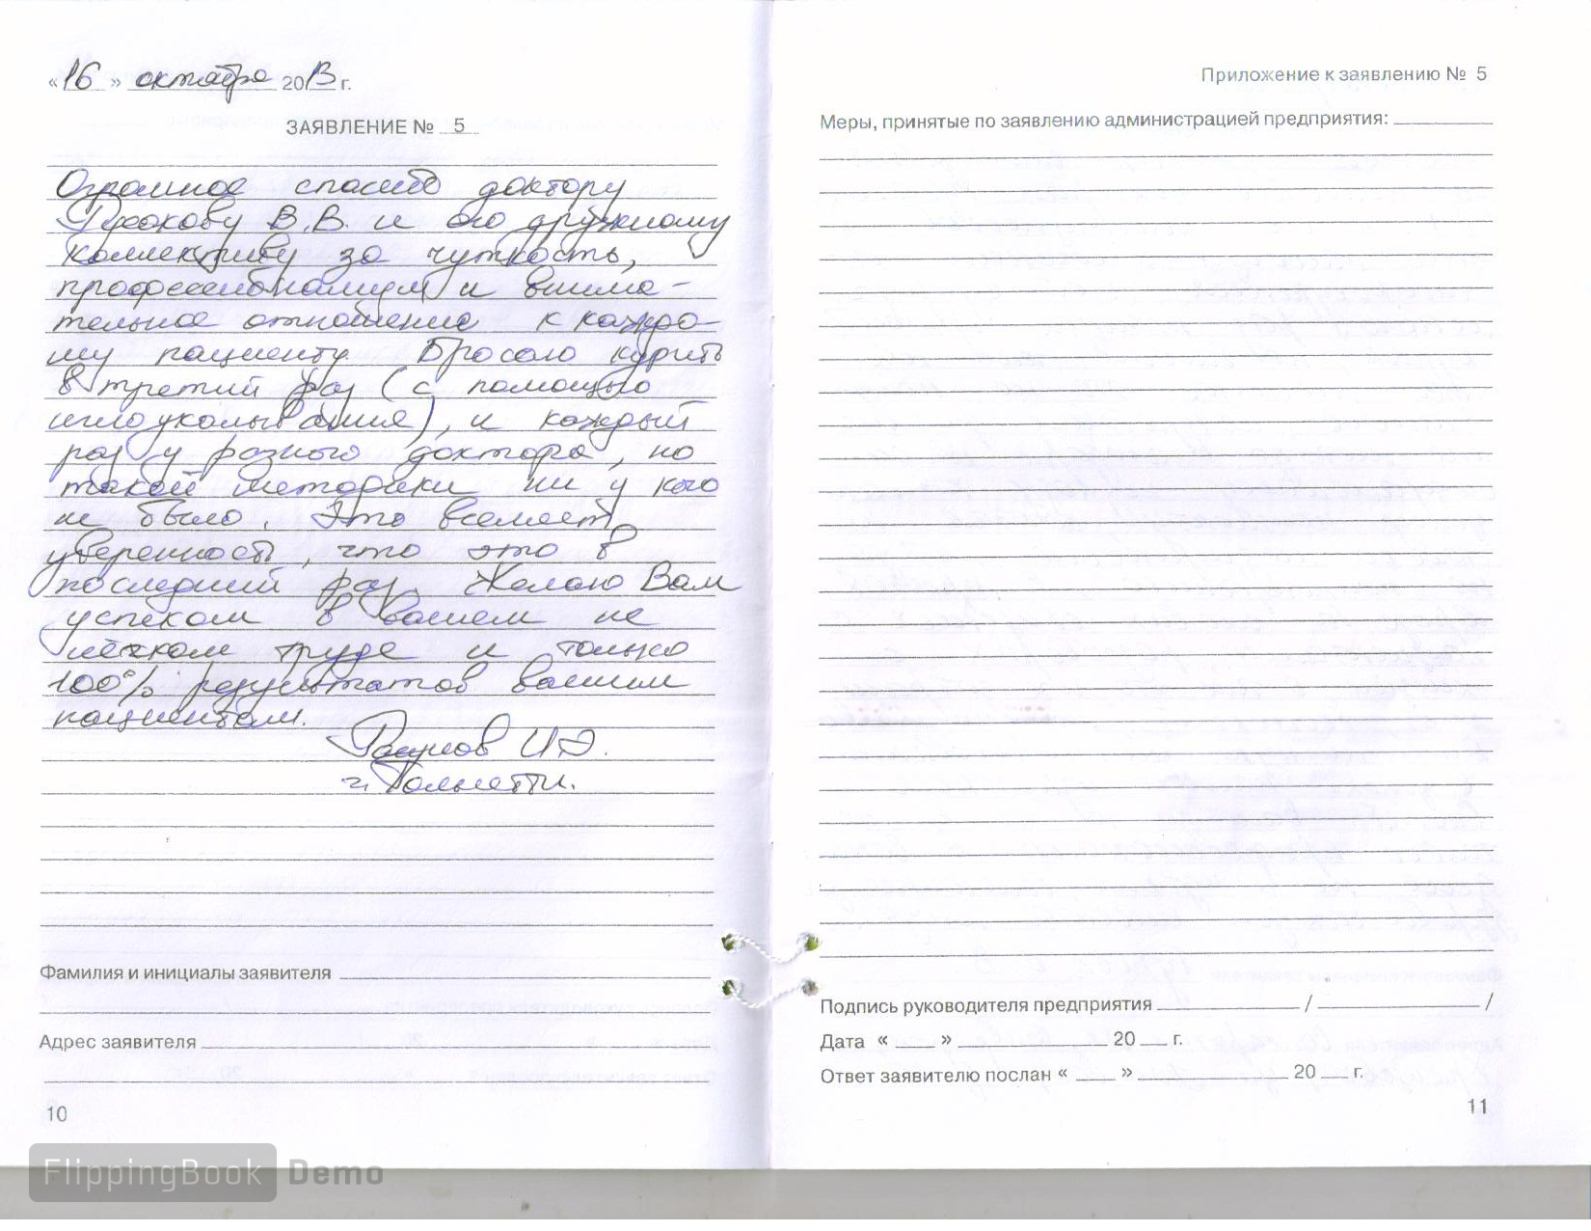 «16» октября 2013 г.
ЗАЯВЛЕНИЕ № 5
Огромное спасибо доктору
В.В. и его дружному
коллективу за чуткость,
профессионализм и внима-
тельное отношение к каждо-
му пациенту. Бросаю курить
в третий раз (с помощью
иглоукалывания), и каждый
раз у разного доктора, но
такой методики ни у кого
не было. Это вселяет
уверенность, что это в
последний раз. Желаю Вам
успехом в вашем не
лёгком труде и только
100% результатов вашим
пациентам.
И.Э.
г. Тольятти.
Фамилия и инициалы заявителя
Адрес заявителя
10
Приложение к заявлению № 5
Меры, принятые по заявлению администрацией предприятия:
Подпись руководителя предприятия / /
Дата « » 20 г.
Ответ заявителю послан « » 20 г.
11
FlippingBook Demo